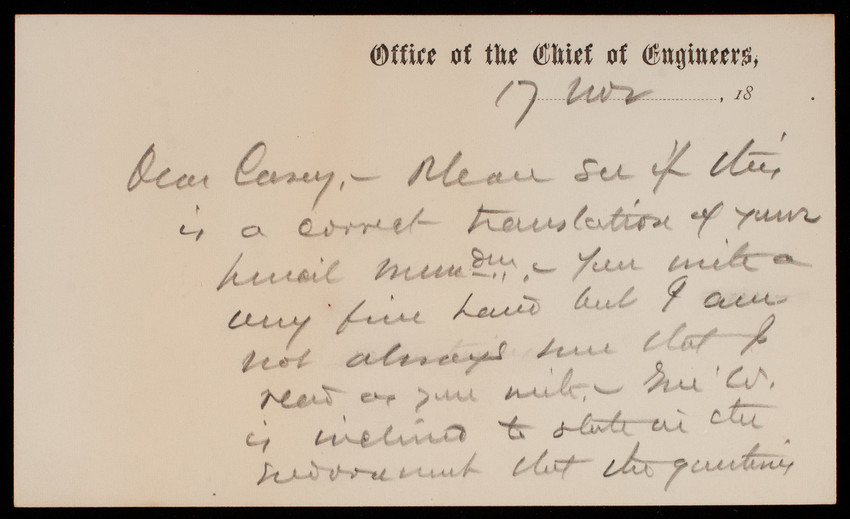 Office of the Chief of Engineers,
17 Nov , 18
Dear Casey, – Please see if this
is a correct translation of your
pencil mem dm. – You write a
very fine hand but I am
not always sure that I
read as you write. – Gen'l W.
is inclined to state in the
endorsement that the questions